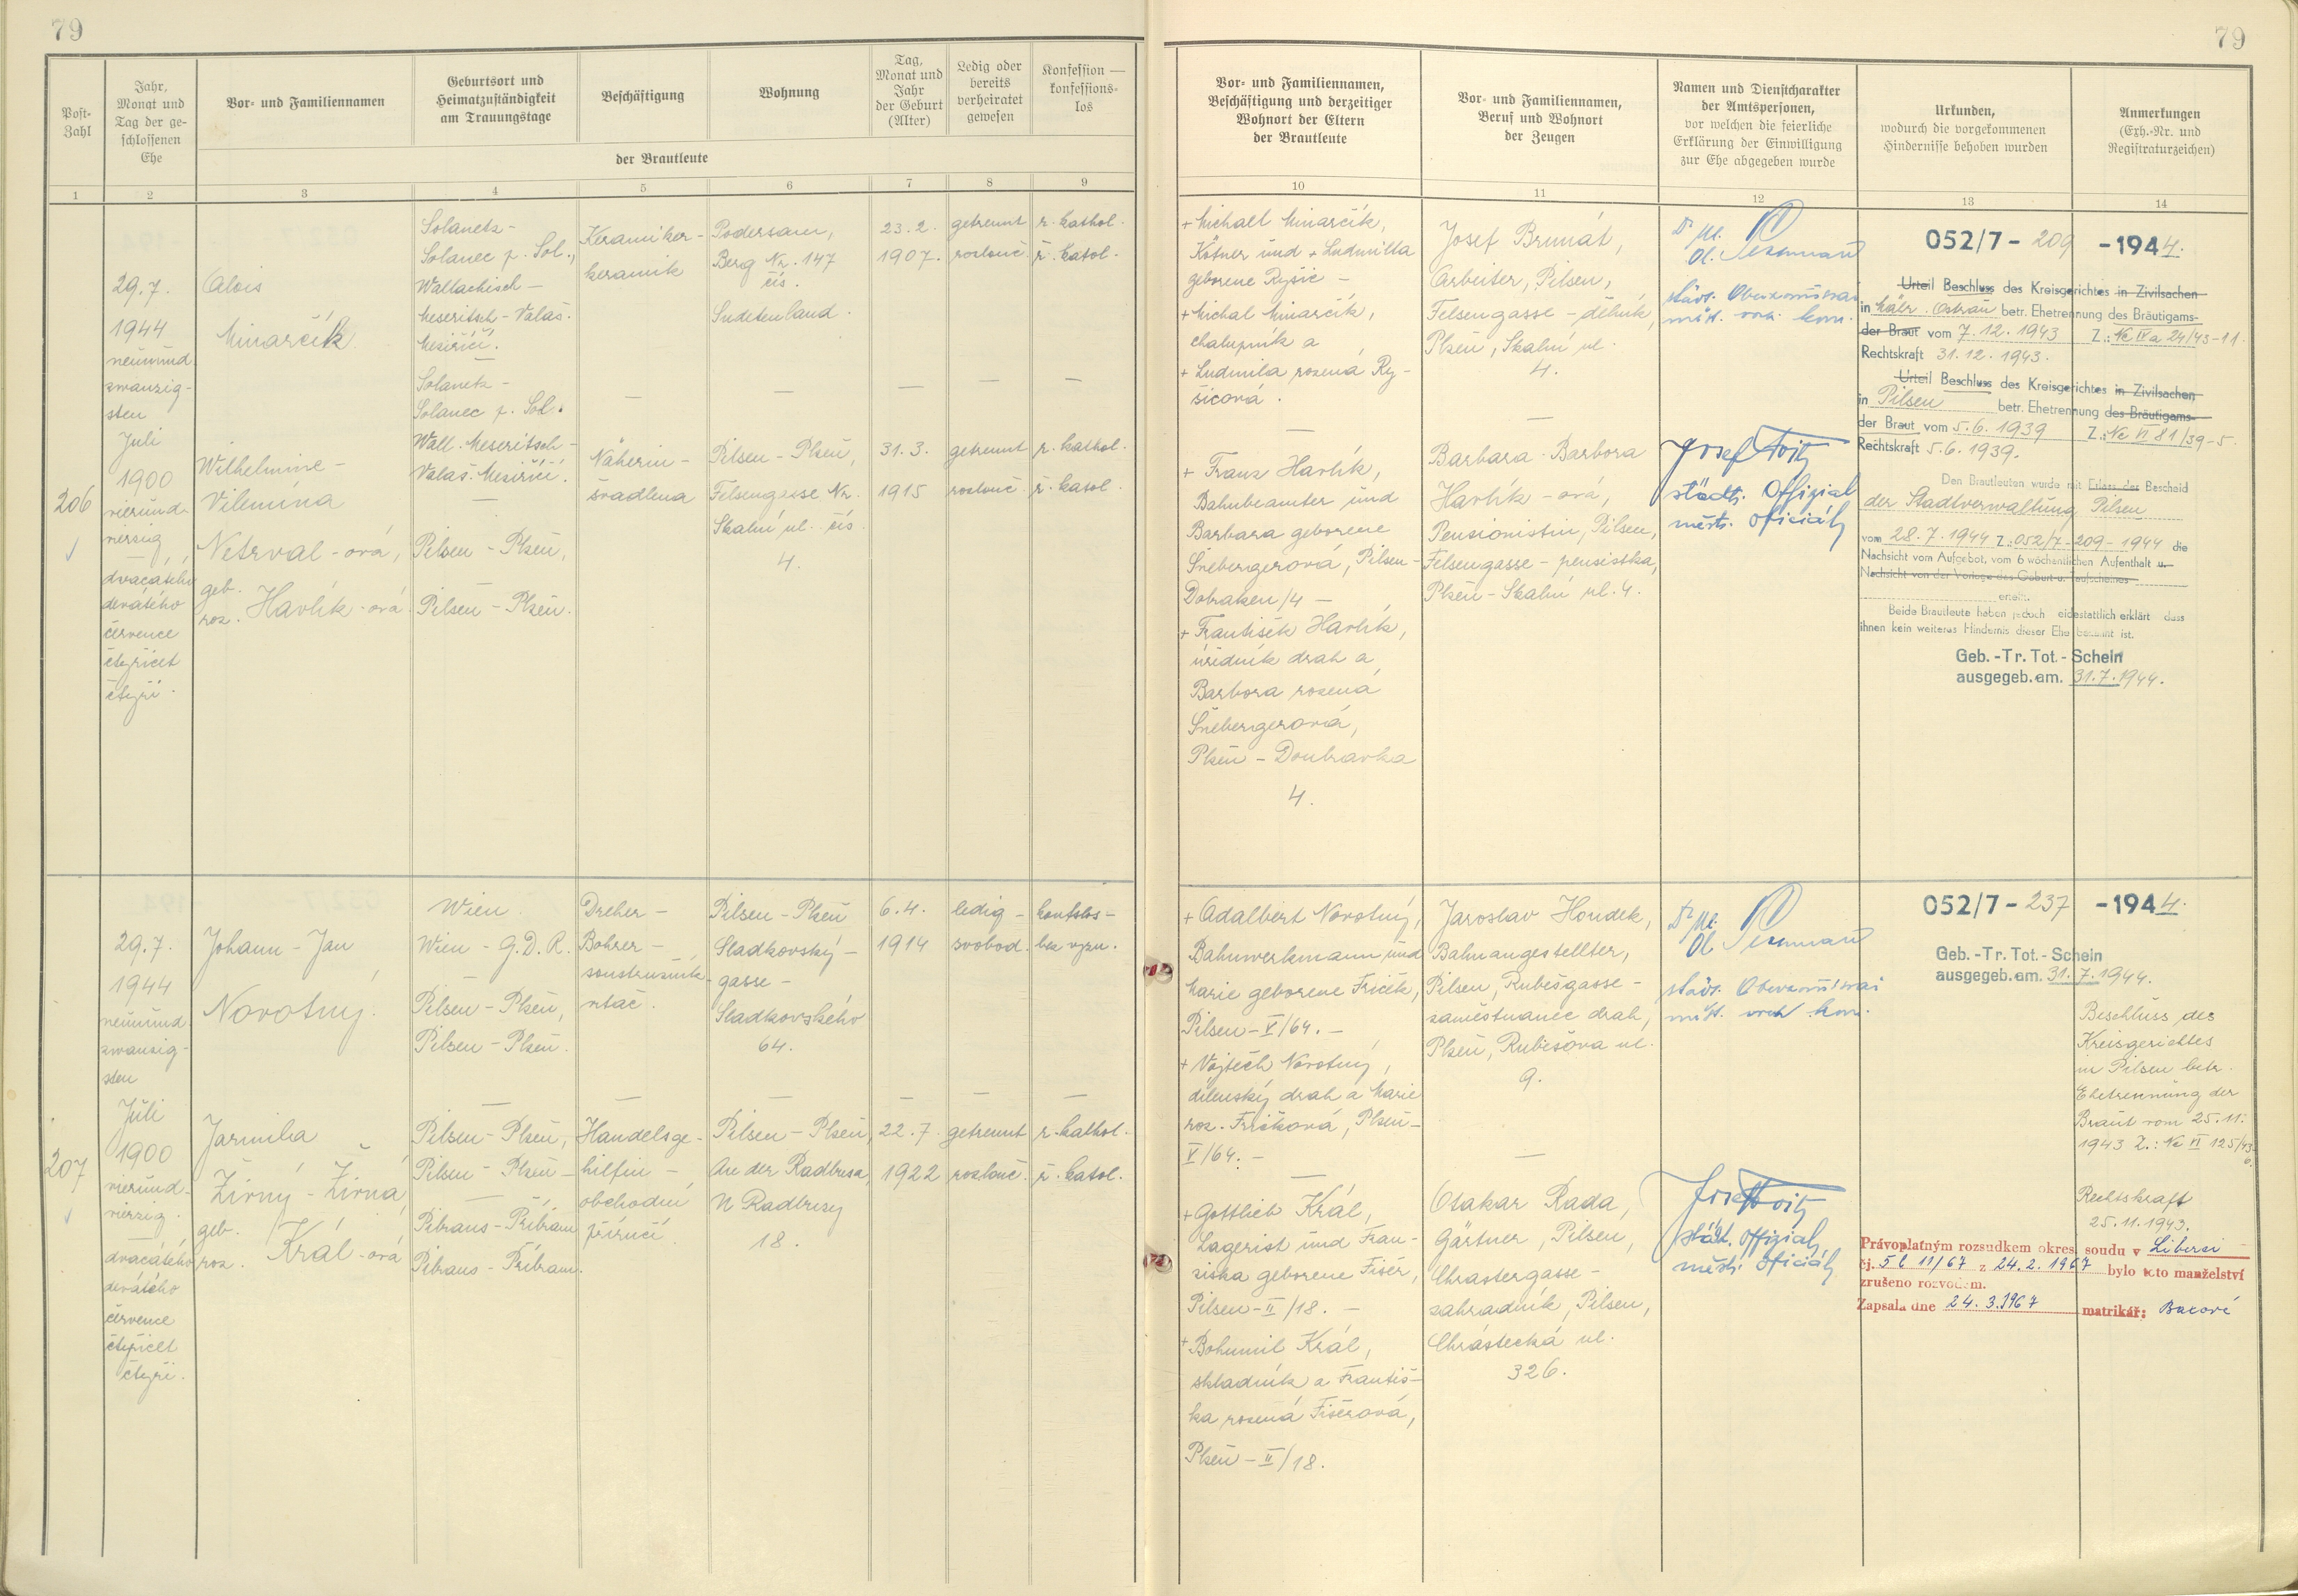 79
79
Post-
Zahl
Jahr,
Monat und
Tag der ge-
schlossenen
Ehe
Vor- und Familiennamen
Geburtsort und
Heimatzuständigkeit
am Trauungstage
Beschäftigung
Wohnung
Tag,
Monat und
Jahr
der Geburt
(Alter)
Ledig oder
bereits
verheiratet
gewesen
Konfession —
konfessions-
los
der Brautleute
Vor- und Familiennamen,
Beschäftigung und derzeitiger
Wohnort der Eltern
der Brautleute
Vor- und Familiennamen,
Beruf und Wohnort
der Zeugen
Namen und Dienstcharakter
der Amtspersonen,
vor welchen die feierliche
Erklärung der Einwilligung
zur Ehe abgegeben wurde
Urkunden,
wodurch die vorgekommenen
Hindernisse behoben wurden
Anmerkungen
(Exh.-Nr. und
Registraturzeichen)
1 2 3 4 5 6 7 8 9 10 11 12 13 14
206
29.7.
1944
neunund
zwanzig-
sten
Juli
1900
vierund-
vierzig
—
dvacátého
devátého
července
čtyřicet
čtyři.
Alois
Minarčík
Wilhelmine -
Vilemína
Netrval - ová,
geb.
roz. Havlík - ová
Solanetz -
Solanec p. Sol.,
Wallachisch -
Meseritsch - Valaš.
Meziříčí.
—
Solanetz -
Solanec p. Sol.
Wall. Meseritsch -
Valaš. Meziříčí.
—
Pilsen - Plzeň,
Pilsen - Plzeň.
Keramiker -
keramik
—
Näherin -
švadlena
Podersam,
Berg Nr. 147
čís.
Sudetenland.
—
Pilsen - Plzeň,
Felsengasse Nr.
Skalní ul. čís.
4.
23.2.
1907.
—
31.3.
1915
getrennt
rozlouč.
—
getrennt
rozlouč.
r. kathol.
ř. katol.
—
r. kathol.
ř. katol.
+ Michael Minarčík,
Kötner und + Ludmilla
geborene Ryšic -
+ Michal Minarčík,
chalupník a
+ Ludmila rozená Ry-
šicová.
—
+ Franz Havlík,
Bahnbeamter und
Barbara geborene
Šnebergerová, Pilsen -
Dobraken/4 -
+ František Havlík,
úředník drah a
Barbora rozená
Šnebergerová,
Plzeň - Doubravka
4.
Josef Brunát,
Arbeiter, Pilsen,
Felsengasse - dělník,
Plzeň, Skalní ul.
4.
—
Barbara - Barbora
Havlík - ová,
Pensionistin, Pilsen,
Felsengasse - pensistka,
Plzeň - Skalní ul. 4.
městs. vrch. kom.
Josef Voith
städt. Offizial
městs. oficiál
052/7 - 209 - 1944.
Urteil Beschluss des Kreisgerichtes in Zivilsachen
in Mähr. Ostrau betr. Ehetrennung des Bräutigams-
der Braut vom 7.12.1943 Z.: Nc IVa 24/43-11.
Rechtskraft 31.12.1943.
Urteil Beschluss des Kreisgerichtes in Zivilsachen
in Pilsen betr. Ehetrennung des Bräutigams-
der Braut vom 5.6.1939 Z.: Nc VI 81/39-5.
Rechtskraft 5.6.1939.
Den Brautleuten wurde mit Erlass der Bescheid
der Stadtverwaltung Pilsen
vom 28.7.1944 Z.: 052/7-209-1944 die
Nachsicht vom Aufgebot, vom 6 wöchentlichen Aufenthalt u.
Nachsicht von der Vorlage des Geburt-u. Taufscheines
erteilt.
Beide Brautleute haben jedoch eidesstattlich erklärt dass
ihnen kein weiteres Hindernis dieser Ehe bekannt ist.
Geb.-Tr. Tot.-Schein
ausgegeb. am. 31.7.1944.
207
29.7.
1944
neunund
zwanzig-
sten
Juli
1900
vierund-
vierzig.
—
dvacátého
devátého
července
čtyřicet
čtyři.
Johann - Jan
Novotný.
Jarmila
Žirný - Žirná,
geb.
roz. Král - ová
Wien.
Wien - G.D.R.
—
Pilsen - Plzeň,
Pilsen - Plzeň.
—
Pilsen - Plzeň,
Pilsen - Plzeň -
—
Pibrans - Příbram
Pibrans - Příbram.
Dreher -
Bohrer -
soustružník
vrtač.
—
Handelsge-
hilfin -
obchodní
příručí.
Pilsen - Plzeň
Sladkovský -
gasse -
Sladkovského
64.
—
Pilsen - Plzeň,
An der Radbusa
N Radbuzy
18.
6.4.
1914
—
22.7.
1922
ledig -
svobod.
—
getrennt
rozlouč.
konfslos -
bez vyzn.
—
r. kathol.
ř. katol.
+ Adalbert Novotný,
Bahnwerkmann und
Marie geborene Friček,
Pilsen - V/64. -
+ Vojtěch Novotný,
dílenský drah a Marie
roz. Fričková, Plzeň -
V/64. -
—
+ Gottlieb Král,
Lagerist und Fran-
ziska geborene Fišer,
Pilsen - II/18. -
+ Bohumil Král,
skladník a Františ-
ka rozená Fišerová,
Plzeň - II/18.
Jaroslav Houdek,
Bahnangestellter,
Pilsen, Rubešgasse -
zaměstnanec drah,
Plzeň, Rubešova ul.
9.
—
Otakar Rada,
Gärtner, Pilsen,
Chrastergasse -
zahradník, Pilsen,
Chrástecká ul.
326.
městs. vrch. kom.
Josef Voith
städt. Offizial
městs. oficiál
052/7 - 237 - 1944.
Geb.-Tr. Tot.-Schein
ausgegeb. am. 31.7.1944.
Beschluss des
Kreisgerichtes
in Pilsen betr.
Ehetrennung der
Braut vom 25.11.
1943 Z.: Nc VI 125/43-
6.
Rechtskraft
25.11.1943.
Právoplatným rozsudkem okres. soudu v Liberci
čj. 5 C 11/67 z 24.2.1967 bylo toto manželství
zrušeno rozvodem.
Zapsala dne 24.3.1967 matrikář: